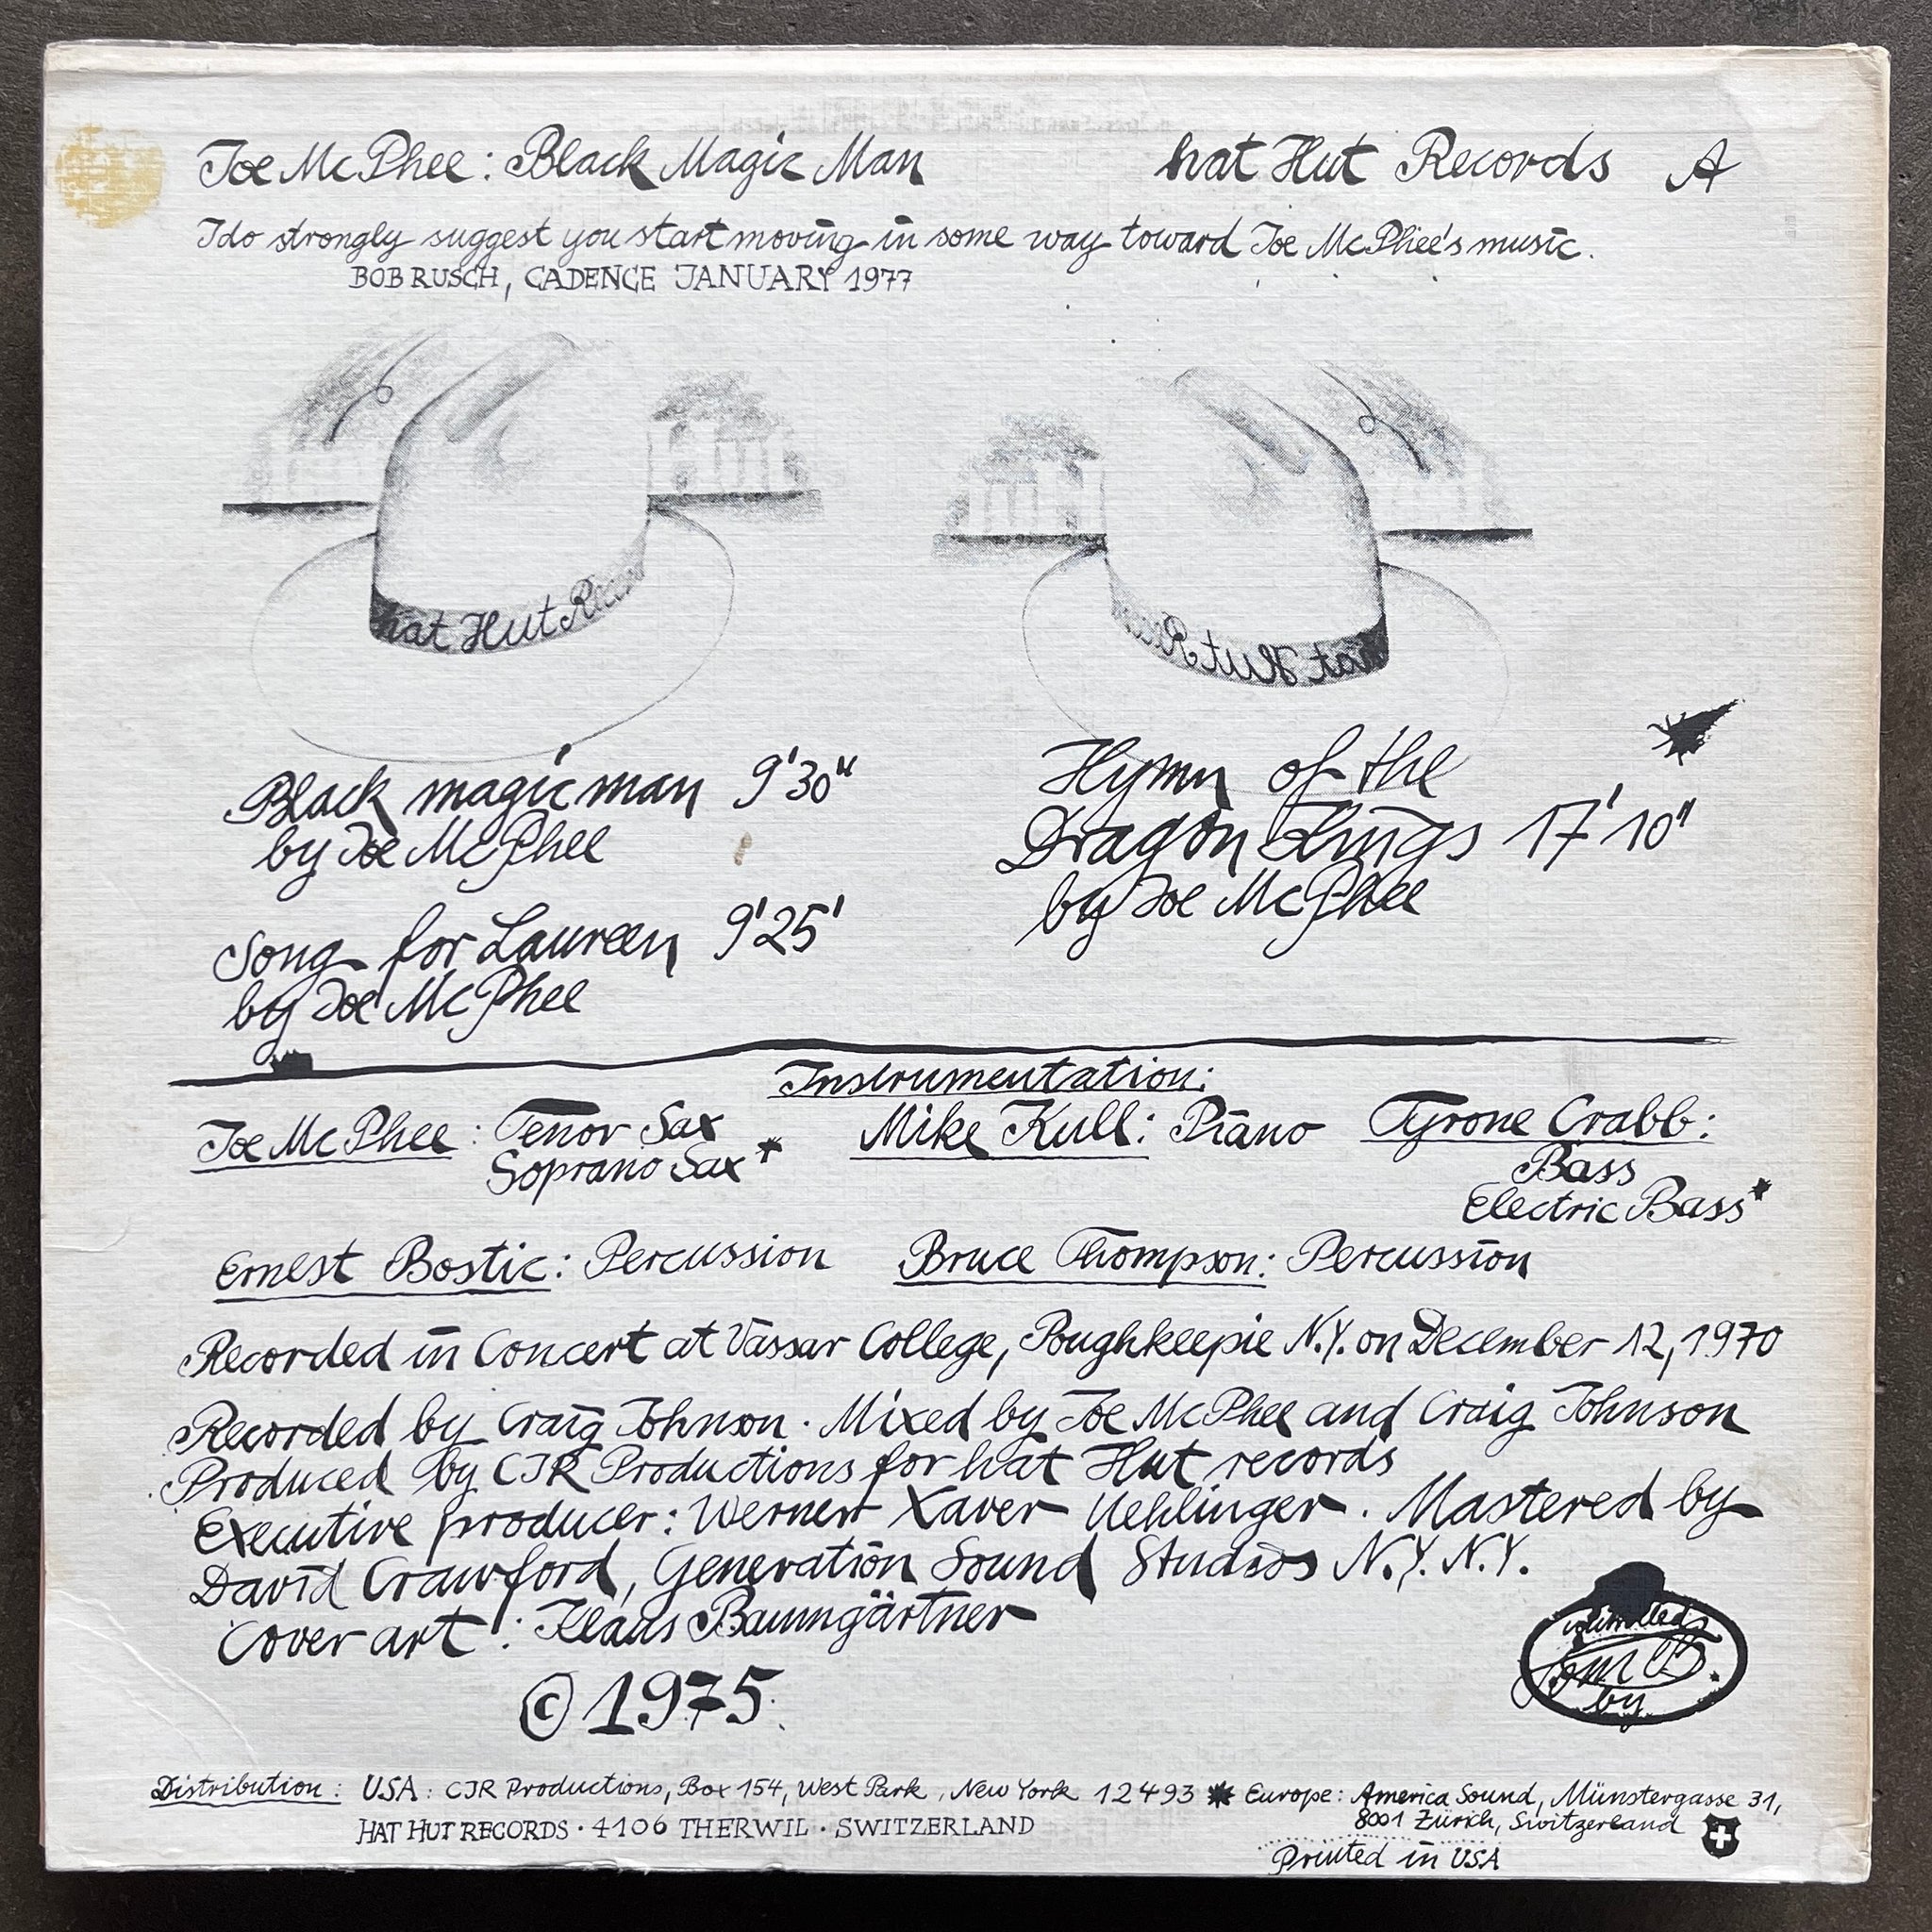 Joe McPhee: Black Magic Man hat Hut Records A
I do strongly suggest you start moving in some way toward Joe McPhee's music.
BOB RUSCH, CADENCE JANUARY 1977
hat Hut Recor
hat Hut Rec
Black magic man 9'30"
by Joe McPhee
Song for Laureen 9'25'
by Joe McPhee
Hymn of the
Dragon Kings 17'10"
by Joe McPhee
Instrumentation:
Joe McPhee: Tenor Sax
Soprano Sax*
Mike Kull: Piano
Tyrone Crabb:
Bass
Electric Bass*
Ernest Bostic: Percussion Bruce Thompson: Percussion
Recorded in Concert at Vassar College, Poughkeepie N.Y. on December 12, 1970
Recorded by Craig Johnson · Mixed by Joe McPhee and Craig Johnson
Produced by CJR Productions for hat Hut records
Executive producer: Werner Xaver Uehlinger. Mastered by
David Crawford, Generation Sound Studios N.Y. N.Y.
Cover art: Klaus Baumgärtner
© 1975
by
Distribution: USA: CJR Productions, Box 154, West Park, New York 12493 * Europe: America Sound, Münstergasse 31,
8001 Zürich, Switzerland
HAT HUT RECORDS · 4106 THERWIL · SWITZERLAND
Printed in USA